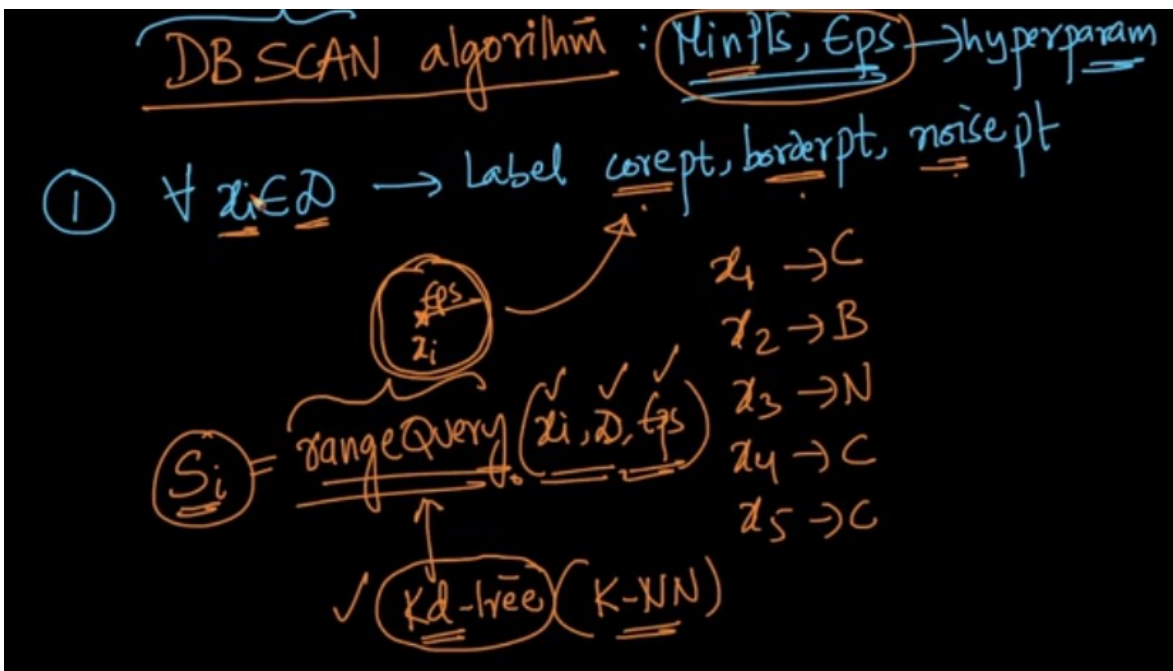 DBSCAN algorithm : MinPts, Eps → hyperparam
① ∀ xi ∈ D → Label corept, borderpt, noise pt
Eps
xi
x1 → C
x2 → B
x3 → N
x4 → C
x5 → C
Si = rangeQuery (xi, D, Eps)
Kd-tree (K-NN)